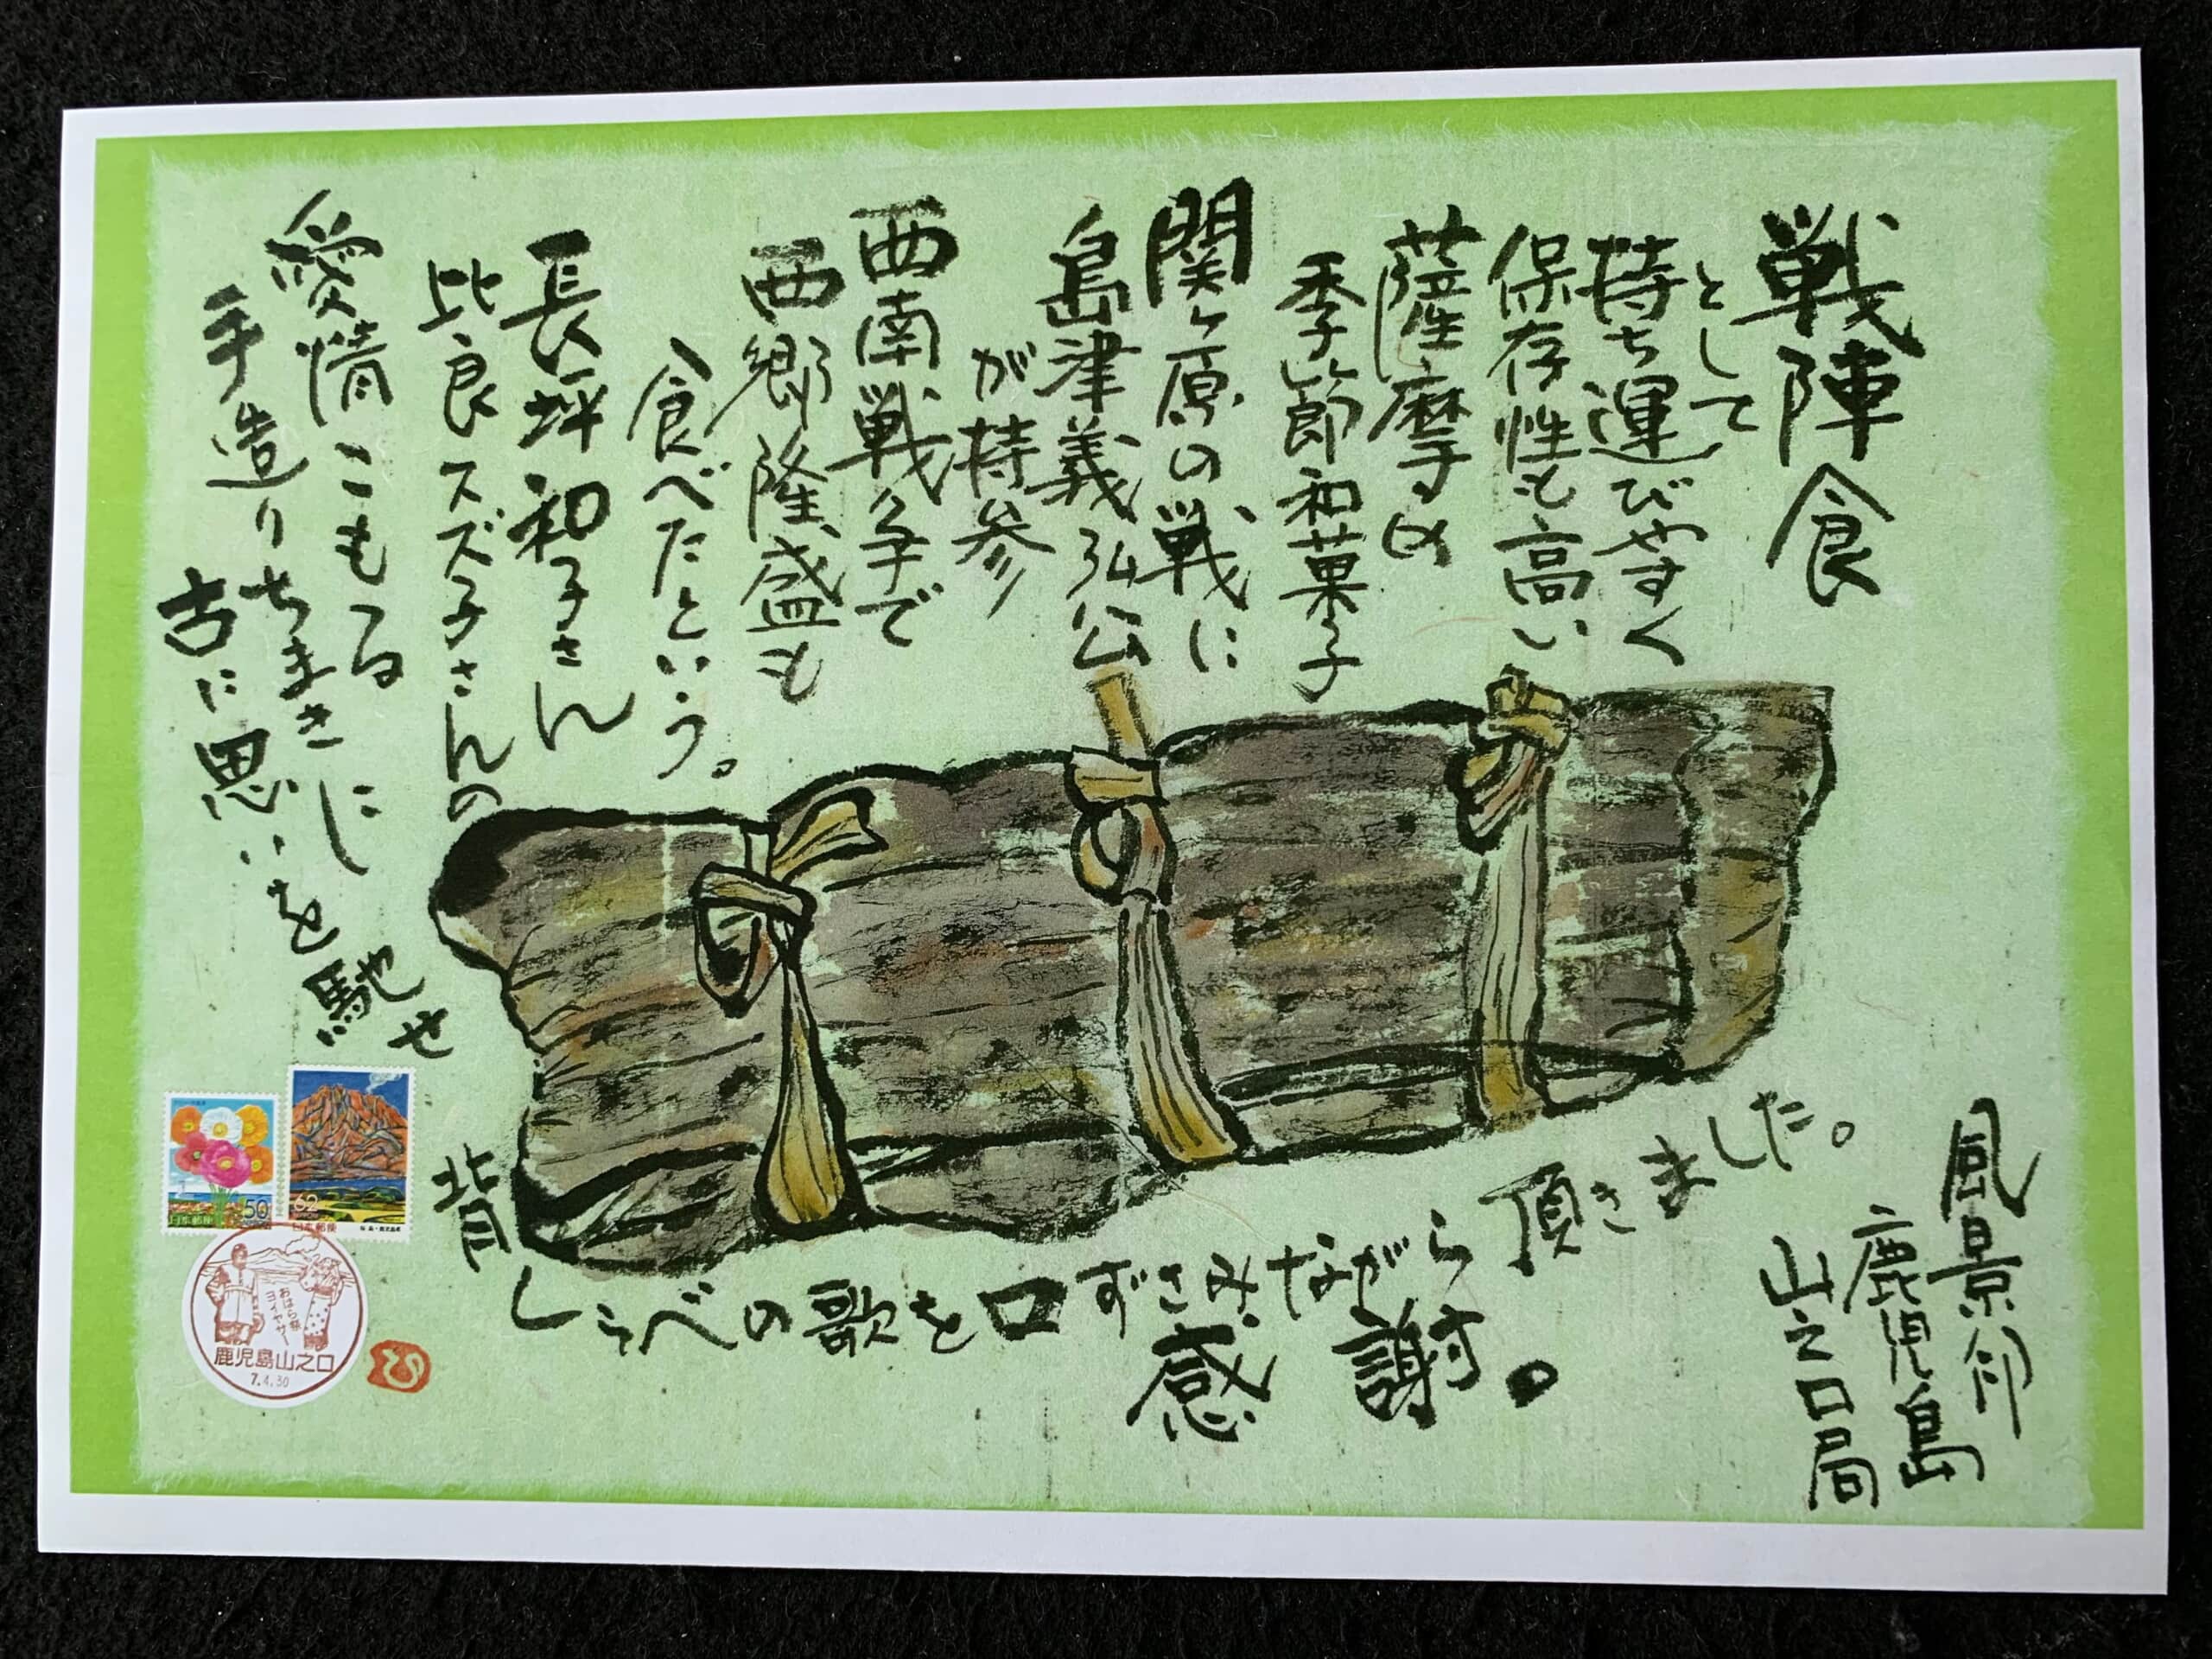 戦陣食
として
持ち運びやすく
保存性も高い
薩摩の
季節和菓子
関ヶ原の戦に
島津義弘公
が持参
西南戦争で
西郷隆盛も
食べたという。
長坪和子さん
比良スズ子さんの
愛情こもる
手造りちまきに
古に思いを馳せ
背くらべの歌を口ずさみながら頂きました。
感謝。
風景印
鹿児島
山之口局
50
日本郵便
62
日本郵便
桜島・鹿児島県
おはら祭
ヨイヤサー
鹿児島山之口
7.4.30